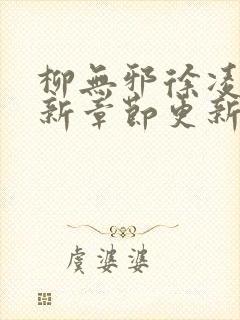 柳無邪徐凌
新章節更新
虞婆婆